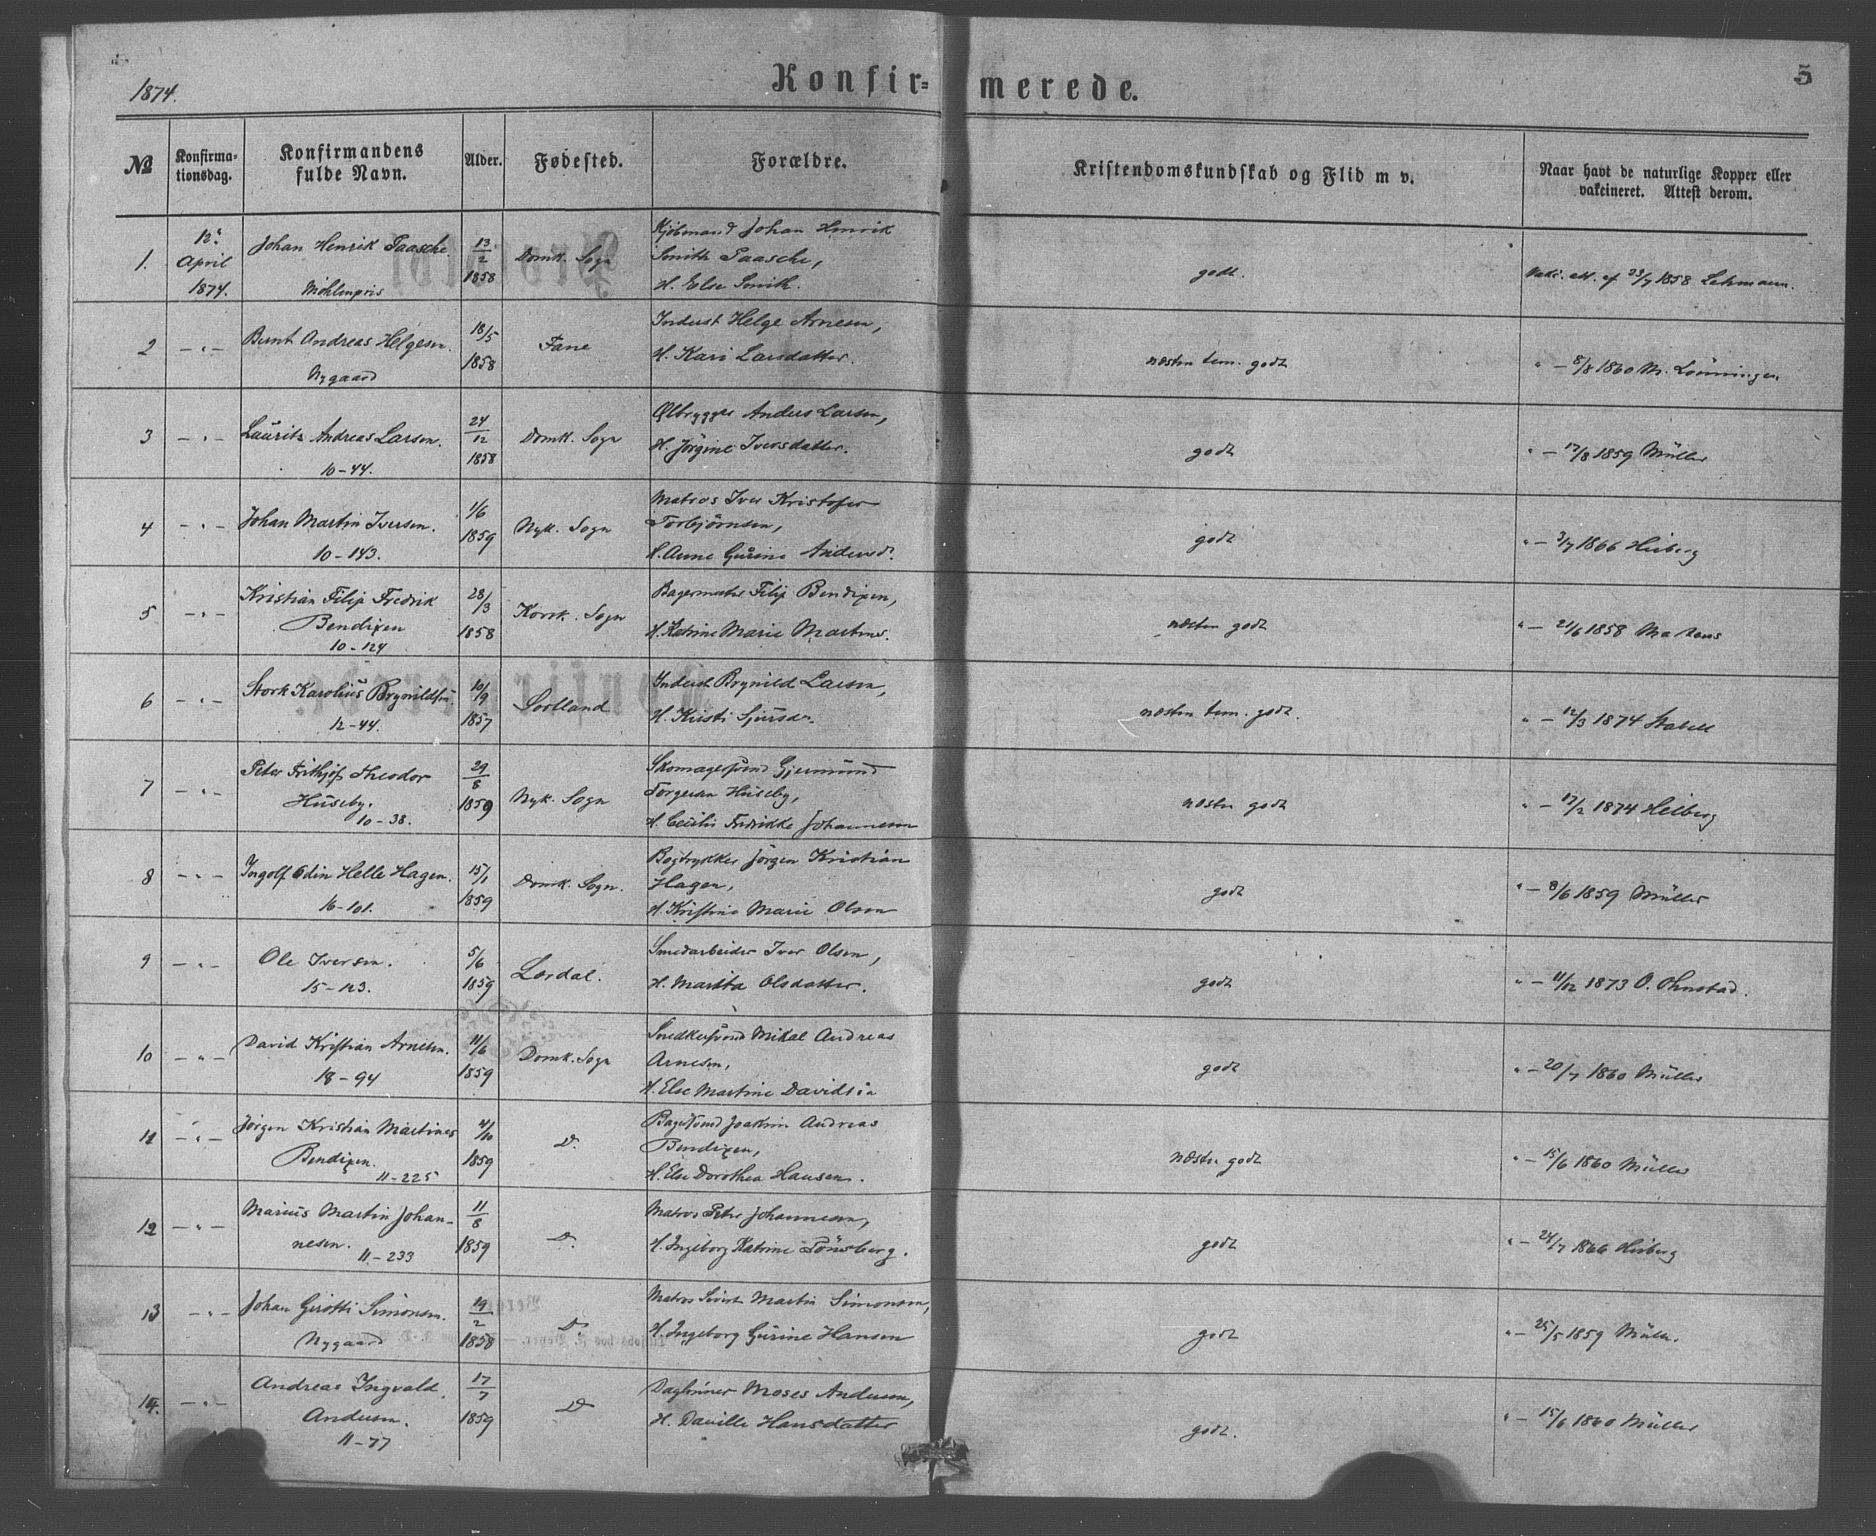 1874.
Konfir= merede.
5
№
Konfirma-
tionsdag.
Konfirmandens
fulde Navn.
Alder.
Fødested.
Forældre.
Kristendomskundskab og Flid m v.
Naar havt de naturlige Kopper eller
vakcineret. Attest derom.
1.
12te
April
1874.
Johan Henrik Paasche
Möhlenpris
13/2
1858
Domk. Sogn
Kjöbmand Johan Henrik
Smith Paasche,
H. Else Smith.
godt.
Vakc. att. af 23/7 1858 Lehmann.
2
— „ —
Bernt Andreas Helgesen.
Nygaard
18/5
1858
Fane
Inderst Helge Arnesen,
H. Kari Larsdatter.
næsten tem. godt
„ — 8/8 1860 M. Lönningen
3
— „ —
Lauritz Andreas Larsen.
10-44.
24/12
1858
Domk. Sogn
Ølbrygger Anders Larsen,
H. Jörgine Iversdatter.
godt
„ — 17/8 1859 Müller
4
— „ —
Johan Martin Iversen.
10-143.
1/6
1859
Nyk. Sogn
Matros Iver Kristofer
Torbjörnsen,
H. Anne Gurine Andersd.
godt
„ — 3/7 1866 Heiberg
5
— „ —
Kristian Filip Fredrik
Bendixen
10-124
28/3
1858
Korsk. Sogn
Bagermester Filip Bendixen,
H. Katrine Marie Martens.
næsten godt
„ — 21/6 1858 Martens
6
— „ —
Stork Karolius Brynildsen.
12-44.
10/9
1857
Sortland
Inderst Brynild Larsen,
H. Kristi Sjursdr.
næsten tem. godt.
„ — 12/3 1874 Stabell
7
— „ —
Peter Frithjof Theodor
Huseby.
10-38.
29/8
1859
Nyk. Sogn
Skomagersvend Gjermund
Torgersen Huseby,
H. Cecilie Fredrikke Johannesen
næsten godt
„ — 17/2 1874 Heiberg
8
— „ —
Ingolf Odin Helle Hagen.
16-101.
15/1
1859
Domk. Sogn.
Bogtrykker Jörgen Kristian
Hagen,
H. Kristine Marie Olsen
godt
„ — 8/6 1859 Müller
9
— „ —
Ole Iversen.
15-123.
5/6
1859
Lærdal.
Smedarbeider Iver Olsen,
H. Martha Olsdatter.
godt
„ — 11/12 1873 O. Ohnstad.
10
— „ —
David Kristian Arnesen.
18-94
11/6
1859
Domk. Sogn
Snedkersvend Mikal Andreas
Arnesen,
H. Else Martine Davidsen
godt
„ — 20/7 1860 Müller
11
— „ —
Jørgen Kristian Martines
Bendixen.
11-225
4/10
1859
Do
Bagersvend Joakim Andreas
Bendixen,
H. Else Dorothea Hansen.
næsten godt
„ — 15/6 1860 Müller
12
— „ —
Marius Martin Johan-
nesen.
11-233
11/8
1859
Do
Matros Peter Johannesen,
H. Ingeborg Katrine Tönsberg.
godt
„ — 24/7 1866 Heiberg
13
— „ —
Johan Girotti Simonsen.
Nygaard
19/2
1858
Do
Matros Sivert Martin Simonsen,
H. Ingeborg Gurine Hansen
godt
„ — 25/5 1859 Müller.
14.
— „ —
Andreas Ingvald
Andersen.
11-77
17/7
1859
Do
Daglönner Moses Andersen,
H. Daville Hansdatter
godt.
„ — 15/6 1860 Müller